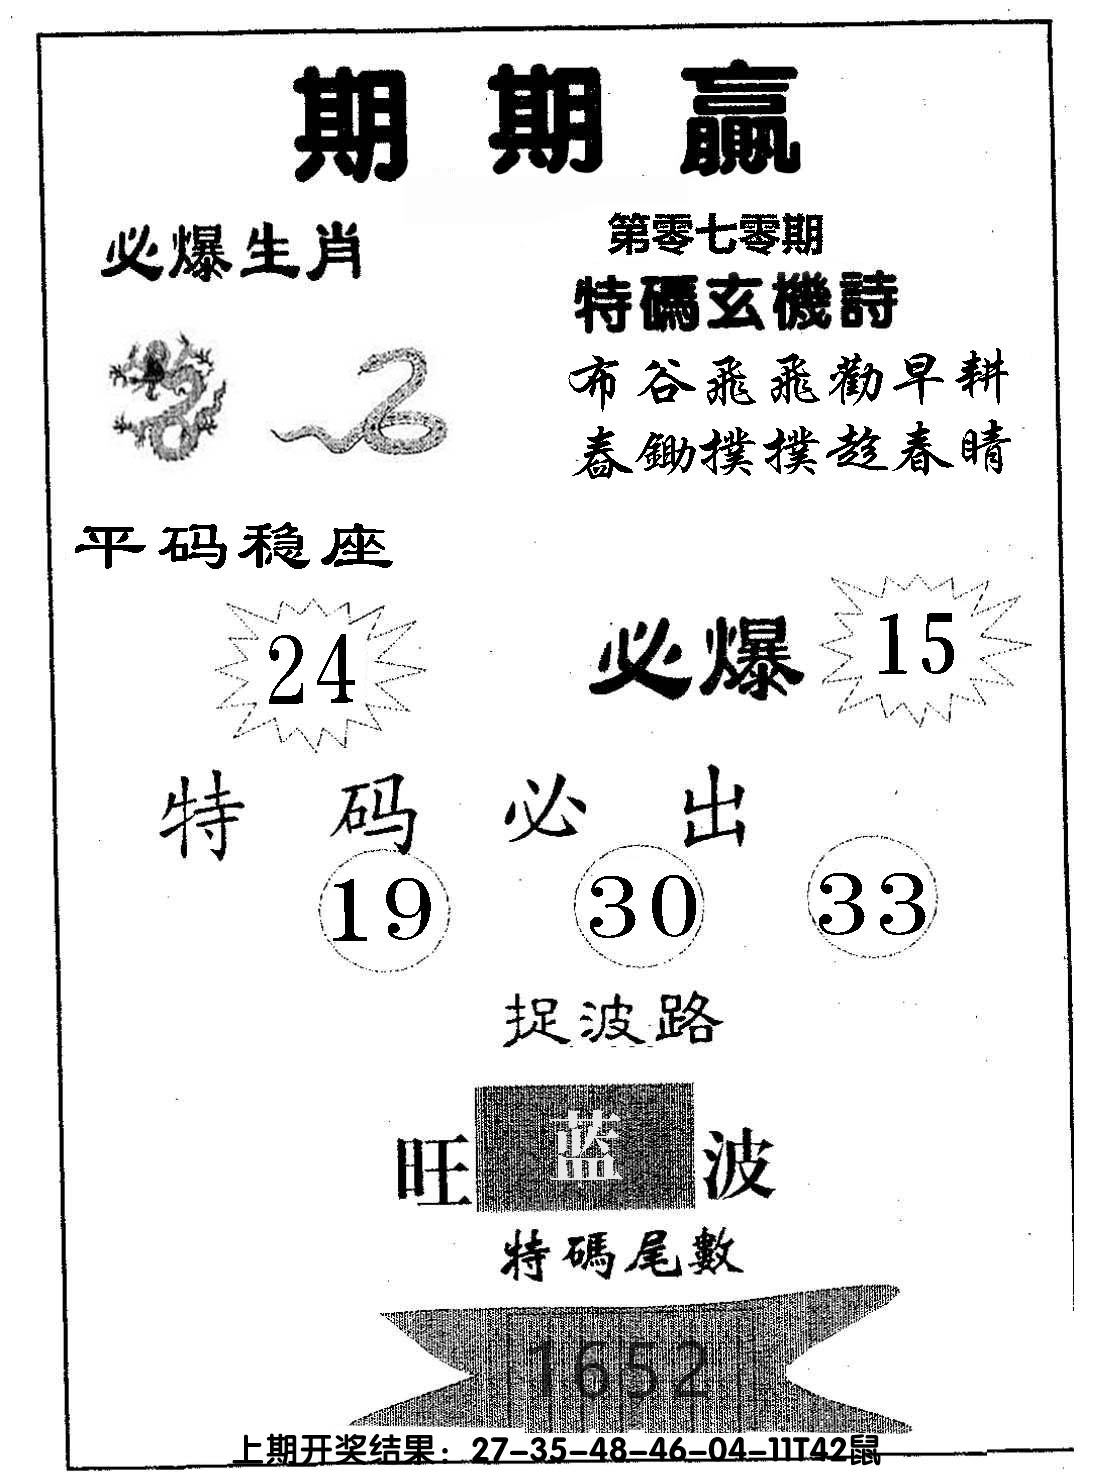 期期赢
必爆生肖
第零七零期
特碼玄機詩
布谷飛飛勸早耕
春鋤撲撲趁春晴
平码稳座
24
必爆 15
特码必出
19 30 33
捉波路
旺 蓝 波
特碼尾數
1652
上期开奖结果：27-35-48-46-04-11T42鼠